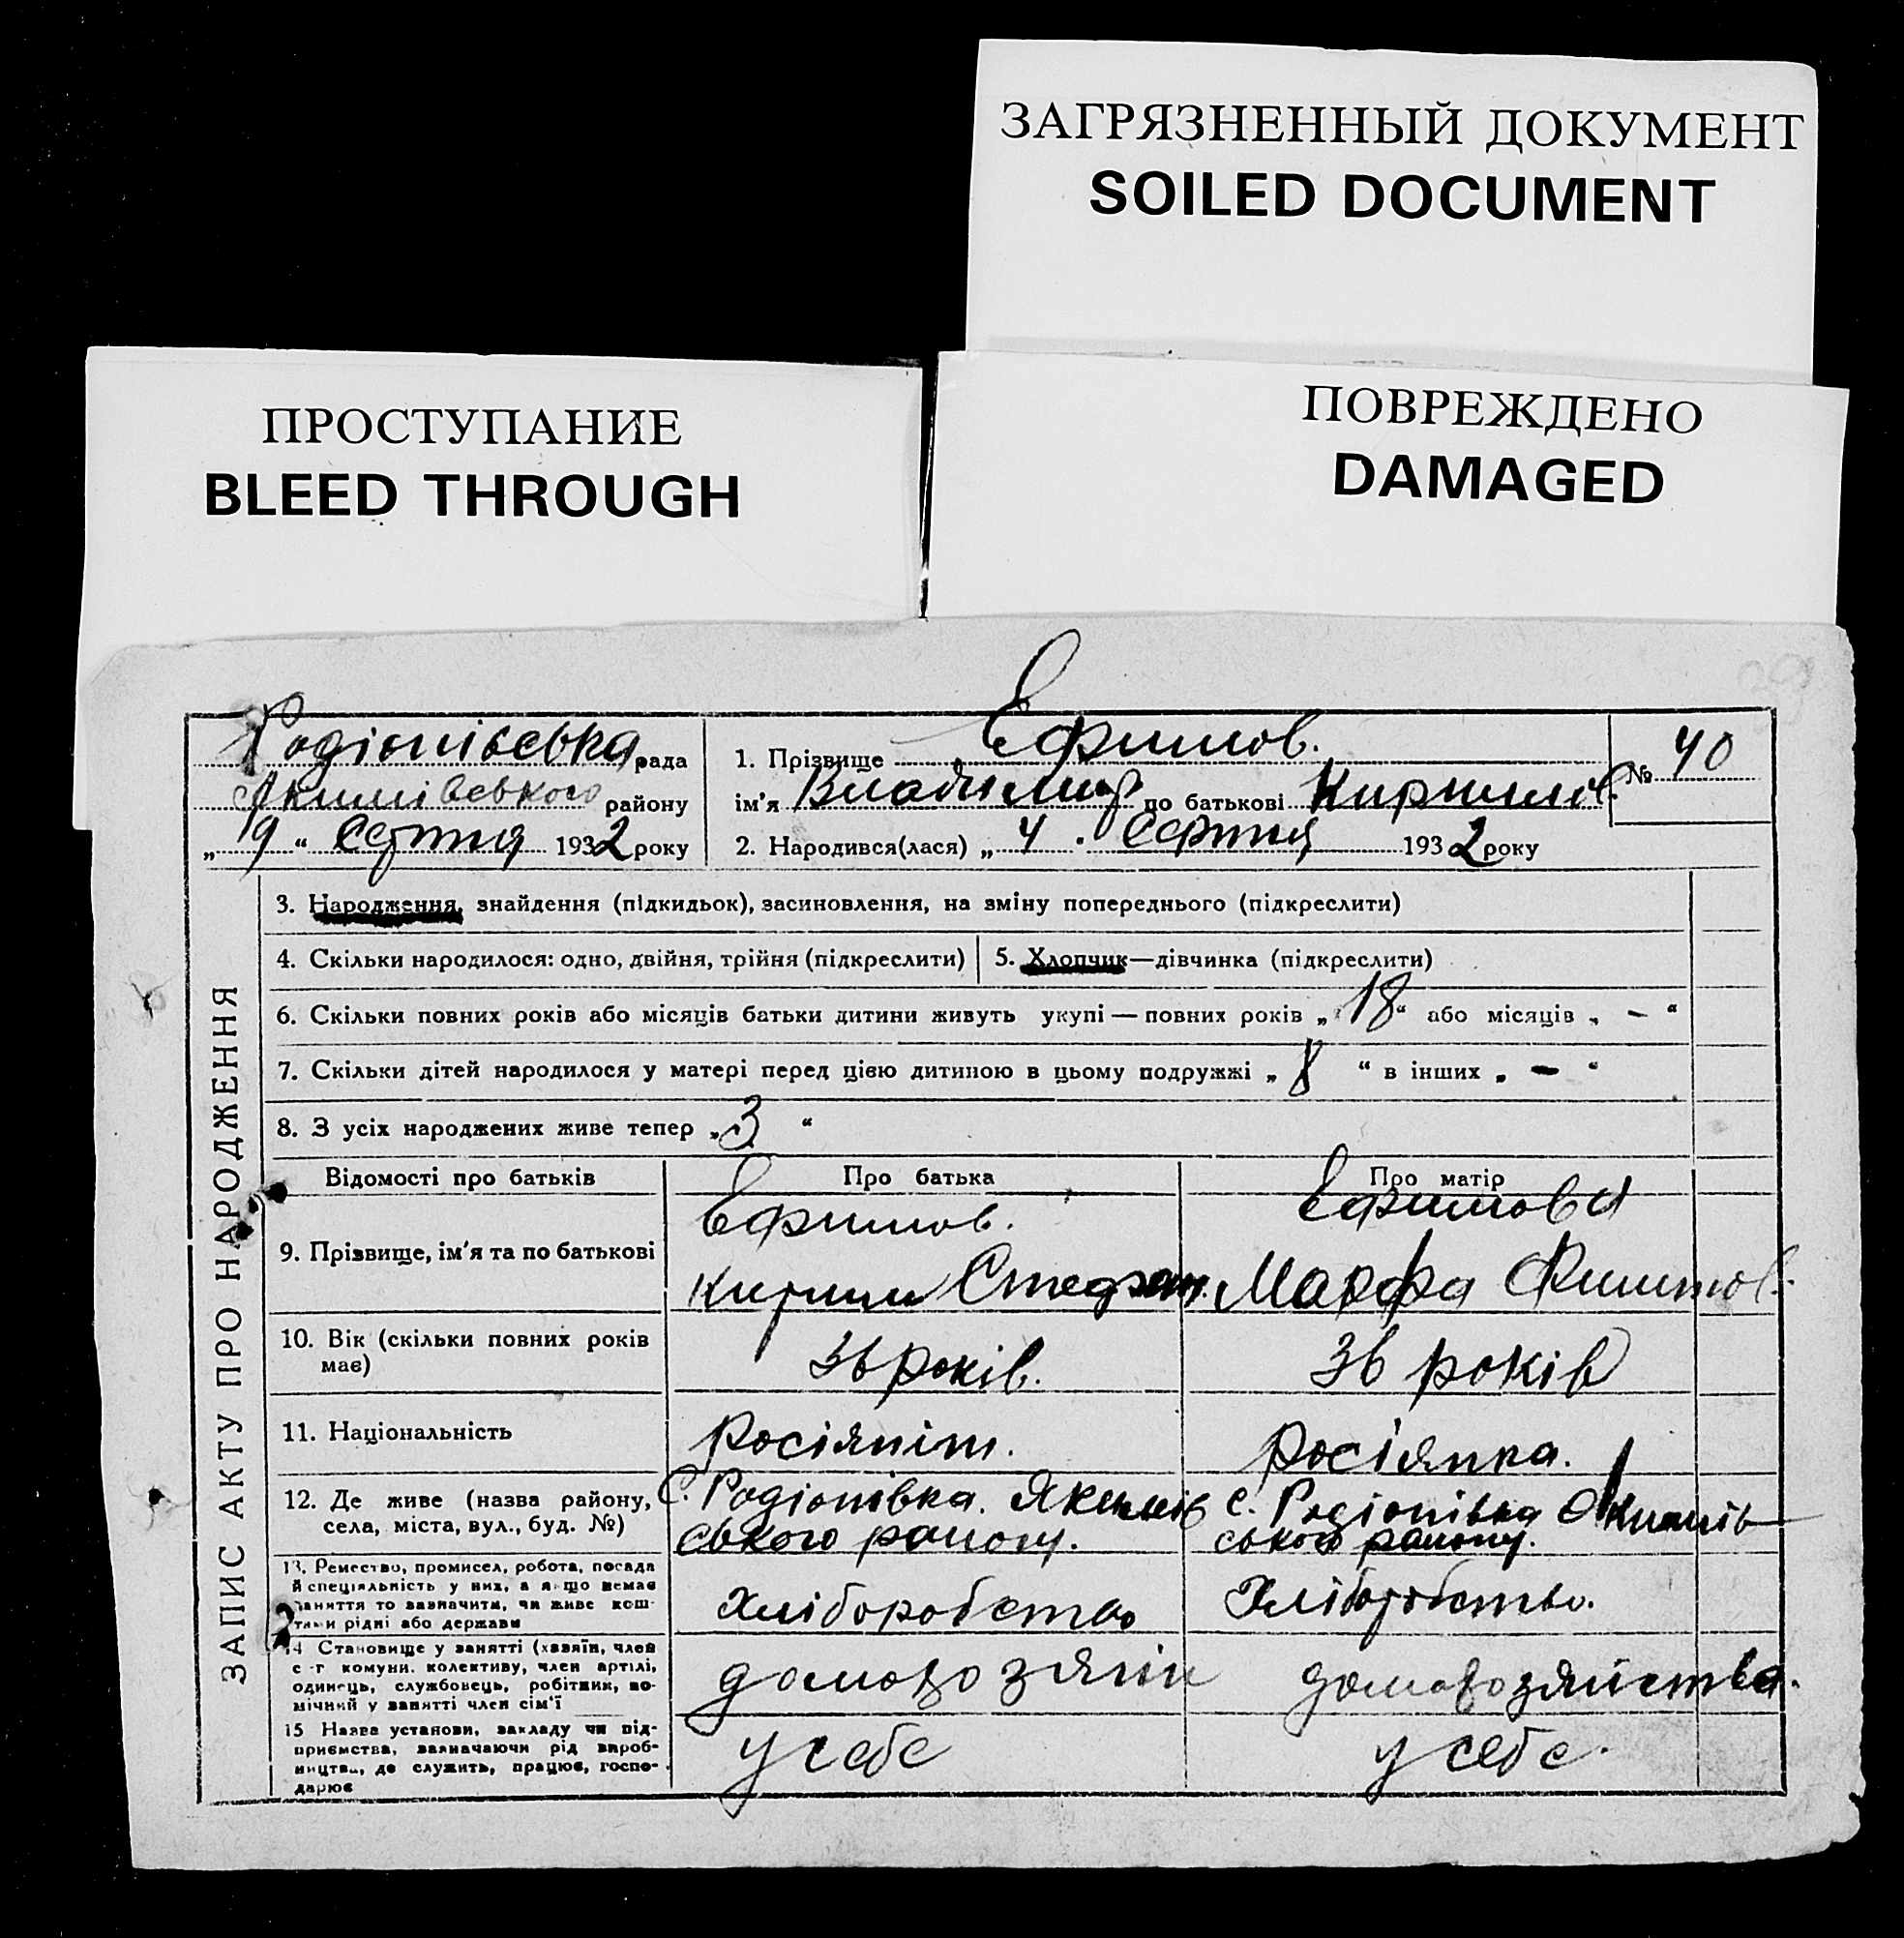 ЗАГРЯЗНЕННЫЙ ДОКУМЕНТ
SOILED DOCUMENT
ПРОСТУПАНИЕ
BLEED THROUGH
ПОВРЕЖДЕНО
DAMAGED
Родіонівська рада
Якимівського району
„ 9 “ серпня 1932 року
1. Прізвище Ефимов.
ім'я Владимир по батькові Кирилов.
2. Народився(лася) „ 4 . серпня 1932 року
№ 40
ЗАПИС АКТУ ПРО НАРОДЖЕННЯ
3. Народження, знайдення (підкидьок), засиновлення, на зміну попереднього (підкреслити)
4. Скільки народилося: одно, двійня, трійня (підкреслити)
5. Хлопчик—дівчинка (підкреслити)
6. Скільки повних років або місяців батьки дитини живуть укупі — повних років „ 18 “ або місяців „ — “
7. Скільки дітей народилося у матері перед цією дитиною в цьому подружжі „ 8 “ в інших „ — “
8. З усіх народжених живе тепер „ 3 “
Відомості про батьків
Про батька
Про матір
9. Прізвище, ім'я та по батькові
Ефимов.
Кирилл Стефан.
Ефимова
Марфа
10. Вік (скільки повних років
має)
36 років.
36 років
11. Національність
росіянін.
росіянка.
12. Де живе (назва району,
села, міста, вул., буд. №)
С. Родіонівка. Якимів
ського району.
с. Родіонівка Якимів
ського району.
13. Ремество, промисел, робота, посада
й спеціяльність у них, а якщо немає
заняття то зазначити, чи живе кош-
тами рідні або держави
хліборобство
Хліборобство.
14 Становище у занятті (хазяїн, член
с-г комуни. колективу, член артілі,
одинець, службовець, робітник, по-
мічний у занятті член сім'ї
домохозяин
домохозяйства.
15 Назва установи, закладу чи під-
приємства, зазначаючи рід вироб-
ництва, де служить, працює, госпо-
дарює
у себе
у себе.